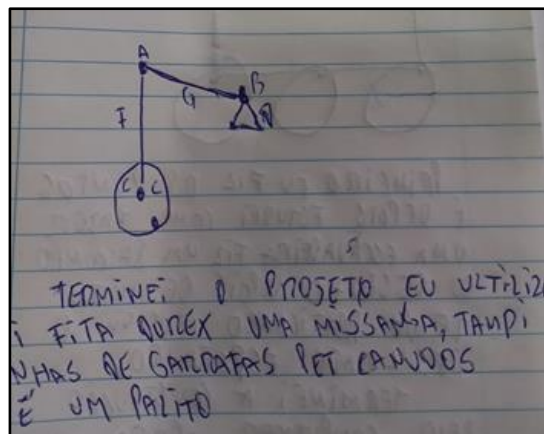 A
B
G
F
C C
TERMINEI O PROJETO EU ULTILIZE
I FITA DUREX UMA MISSANGA, TAMPI
NHAS DE GARRAFAS PET CANUDOS
E UM PALITO